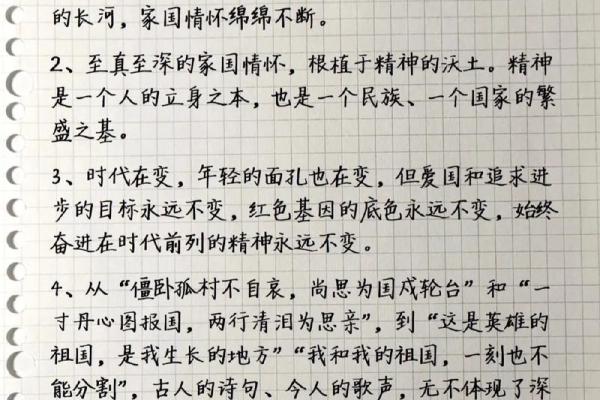 的长河，家国情怀绵绵不断。
2、至真至深的家国情怀，根植于精神的沃土。精神
是一个人的立身之本，也是一个民族、一个国家的繁
盛之基。
3、时代在变，年轻的面孔也在变，但爱国和追求进
步的目标永远不变，红色基因的底色永远不变，始终
奋进在时代前列的精神永远不变。
4、从“僵卧孤村不自哀，尚思为国戍轮台”和“一
寸丹心图报国，两行清泪为思亲”，到“这是英雄的
祖国，是我生长的地方”“我和我的祖国，一刻也不
能分割”，古人的诗句、今人的歌声，无不体现了深